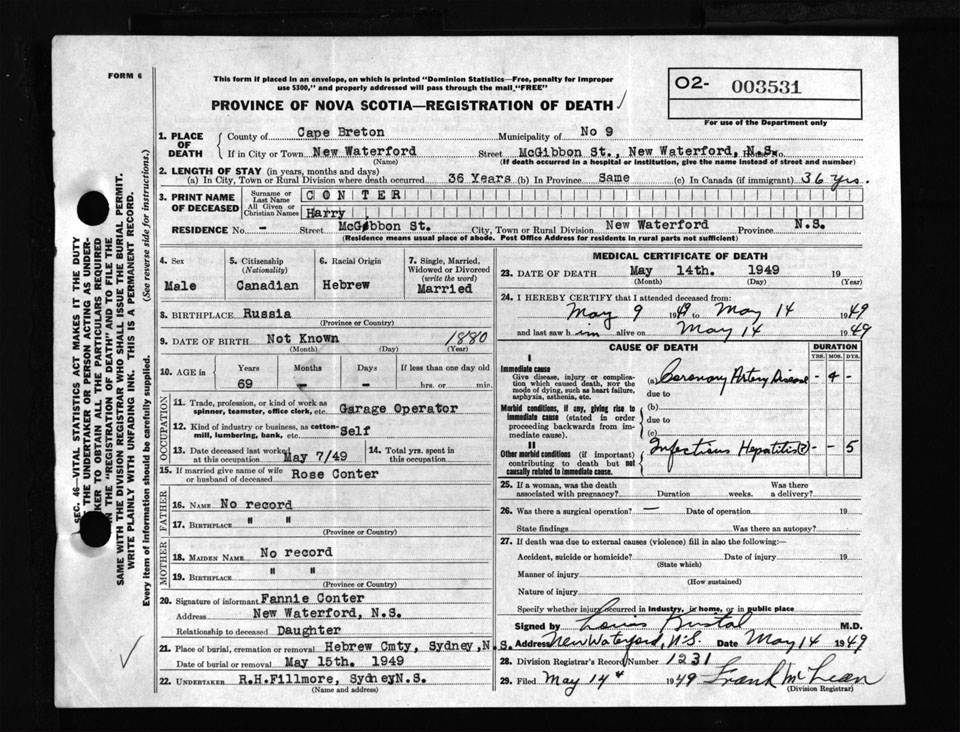 FORM 6
This form if placed in an envelope, on which is printed "Dominion Statistics—Free, penalty for improper
use $300," and properly addressed will pass through the mail "FREE"
PROVINCE OF NOVA SCOTIA—REGISTRATION OF DEATH
O2- 003531
For use of the Department only
1. PLACE OF DEATH
County of Cape Breton Municipality of No 9
If in City or Town New Waterford Street McGibbon St., New Waterford, N.S. House No.
(Name) (If death occurred in a hospital or institution, give the name instead of street and number)
2. LENGTH OF STAY (in years, months and days)
(a) In City, Town or Rural Division where death occurred 36 Years (b) In Province Same (c) In Canada (if immigrant) 36 yrs.
3. PRINT NAME OF DECEASED
Surname or Last Name CONTER
All Given or Christian Names Harry
RESIDENCE No. - Street McGibbon St. City, Town or Rural Division New Waterford Province N.S.
(Residence means usual place of abode. Post Office Address for residents in rural parts not sufficient)
4. Sex
Male
5. Citizenship
(Nationality)
Canadian
6. Racial Origin
Hebrew
7. Single, Married,
Widowed or Divorced
(write the word)
Married
8. BIRTHPLACE Russia
(Province or Country)
9. DATE OF BIRTH Not Known 1880
(Month) (Day) (Year)
10. AGE in Years Months Days If less than one day old
69 - - hrs. or min.
OCCUPATION
11. Trade, profession, or kind of work as
spinner, teamster, office clerk, etc. Garage Operator
12. Kind of industry or business, as cotton-
mill, lumbering, bank, etc. Self
13. Date deceased last worked
at this occupation May 7/49
14. Total yrs. spent in
this occupation
15. If married give name of wife
or husband of deceased Rose Conter
FATHER
16. NAME No record
17. BIRTHPLACE " "
(Province or Country)
MOTHER
18. MAIDEN NAME No record
19. BIRTHPLACE " "
(Province or Country)
20. Signature of informant Fannie Conter
Address New Waterford, N.S.
Relationship to deceased Daughter
21. Place of burial, cremation or removal Hebrew Cmty, Sydney, N.S.
Date of burial or removal May 15th. 1949
22. UNDERTAKER R.H.Fillmore, Sydney N.S.
(Name and address)
MEDICAL CERTIFICATE OF DEATH
23. DATE OF DEATH May 14th. 1949 19
(Month) (Day) (Year)
24. I HEREBY CERTIFY that I attended deceased from:
May 9 1949 to May 14 1949
and last saw him alive on May 14 1949
CAUSE OF DEATH
DURATION
YRS. MOS. DYS.
I
Immediate cause
Give disease, injury or complica-
tion which caused death, NOT the
mode of dying, such as heart failure,
asphyxia, asthenia, etc.
(a) Coronary Artery Disease - 4 -
due to
Morbid conditions, if any, giving rise to
immediate cause (stated in order
proceeding backwards from im-
mediate cause).
(b)
due to
(c)
II
Other morbid conditions (if important)
contributing to death but not
causally related to immediate cause.
Infectious Hepatitis(?) - - 5
25. If a woman, was the death
associated with pregnancy? Duration weeks. Was there
a delivery?
26. Was there a surgical operation? — Date of operation 19
State findings Was there an autopsy?
27. If death was due to external causes (violence) fill in also the following:—
Accident, suicide or homicide? Date of injury 19
(State which)
Manner of injury
(How sustained)
Nature of injury
Specify whether injury occurred in industry, in home, or in public place
Signed by Louis M.D.
Address New Waterford, N.S. Date May 14 1949
28. Division Registrar's Record Number 1231
29. Filed May 14 1949 Frank McLean
(Division Registrar)
SEC. 46—VITAL STATISTICS ACT MAKES IT THE DUTY
THE UNDERTAKER OR PERSON ACTING AS UNDER-
KER TO OBTAIN ALL THE PARTICULARS REQUIRED
IN THE "REGISTRATION OF DEATH" AND TO FILE THE
SAME WITH THE DIVISION REGISTRAR WHO SHALL ISSUE THE BURIAL PERMIT.
WRITE PLAINLY WITH UNFADING INK. THIS IS A PERMANENT RECORD.
Every Item of Information should be carefully supplied. (See reverse side for instructions.)